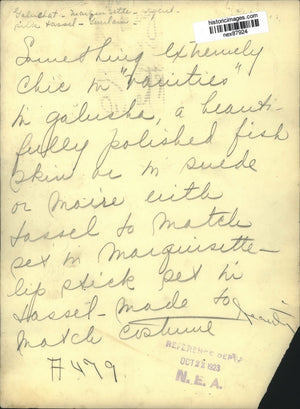 historicimages.com
nex87924
Galuchat - marquisette -
silk tassel -
Something extremely
chic in "vanities"
in galusha, a beauti-
fully polished fish
skin or in suede
or moire with
tassel to match
set in marquisette -
lip stick set in
tassel - made to
match costume
A479
REFERENCE DEPT
OCT 22 1923
N. E. A.